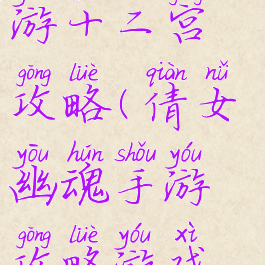 游十二宫
gōng lüè qiàn nǚ
攻略(倩女
yōu hún shǒu yóu
幽魂手游
gōng lüè yóu xì
攻略游戏